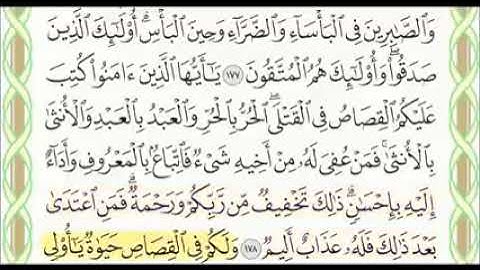 وَٱلصَّٰبِرِينَ فِى ٱلْبَأْسَآءِ وَٱلضَّرَّآءِ وَحِينَ ٱلْبَأْسِ ۗ أُو۟لَٰٓئِكَ ٱلَّذِينَ
صَدَقُوا۟ ۖ وَأُو۟لَٰٓئِكَ هُمُ ٱلْمُتَّقُونَ ١٧٧ يَٰٓأَيُّهَا ٱلَّذِينَ ءَامَنُوا۟ كُتِبَ
عَلَيْكُمُ ٱلْقِصَاصُ فِى ٱلْقَتْلَى ۖ ٱلْحُرُّ بِٱلْحُرِّ وَٱلْعَبْدُ بِٱلْعَبْدِ وَٱلْأُنثَىٰ
بِٱلْأُنثَىٰ ۚ فَمَنْ عُفِىَ لَهُۥ مِنْ أَخِيهِ شَىْءٌ فَٱتِّبَاعٌۢ بِٱلْمَعْرُوفِ وَأَدَآءٌ
إِلَيْهِ بِإِحْسَٰنٍ ۗ ذَٰلِكَ تَخْفِيفٌ مِّن رَّبِّكُمْ وَرَحْمَةٌ ۗ فَمَنِ ٱعْتَدَىٰ
بَعْدَ ذَٰلِكَ فَلَهُۥ عَذَابٌ أَلِيمٌ ١٧٨ وَلَكُمْ فِى ٱلْقِصَاصِ حَيَوٰةٌ يَٰٓأُو۟لِى